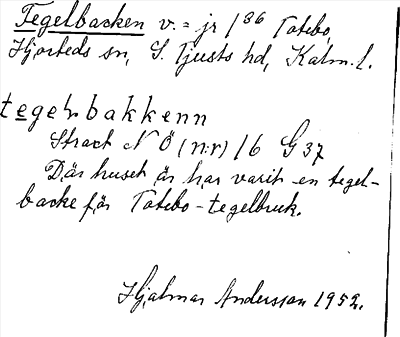 Tegelbacken v. = jr 1³⁶ Totebo,
Hjorteds sn, S. Tjusts hd, Kalm. l.
tegelbakkenn
Strax N Ö (n:r) 16 G 37
Där huset är har varit en tegel-
backe för Totebo-tegelbruk.
Hjalmar Andersson 1952.